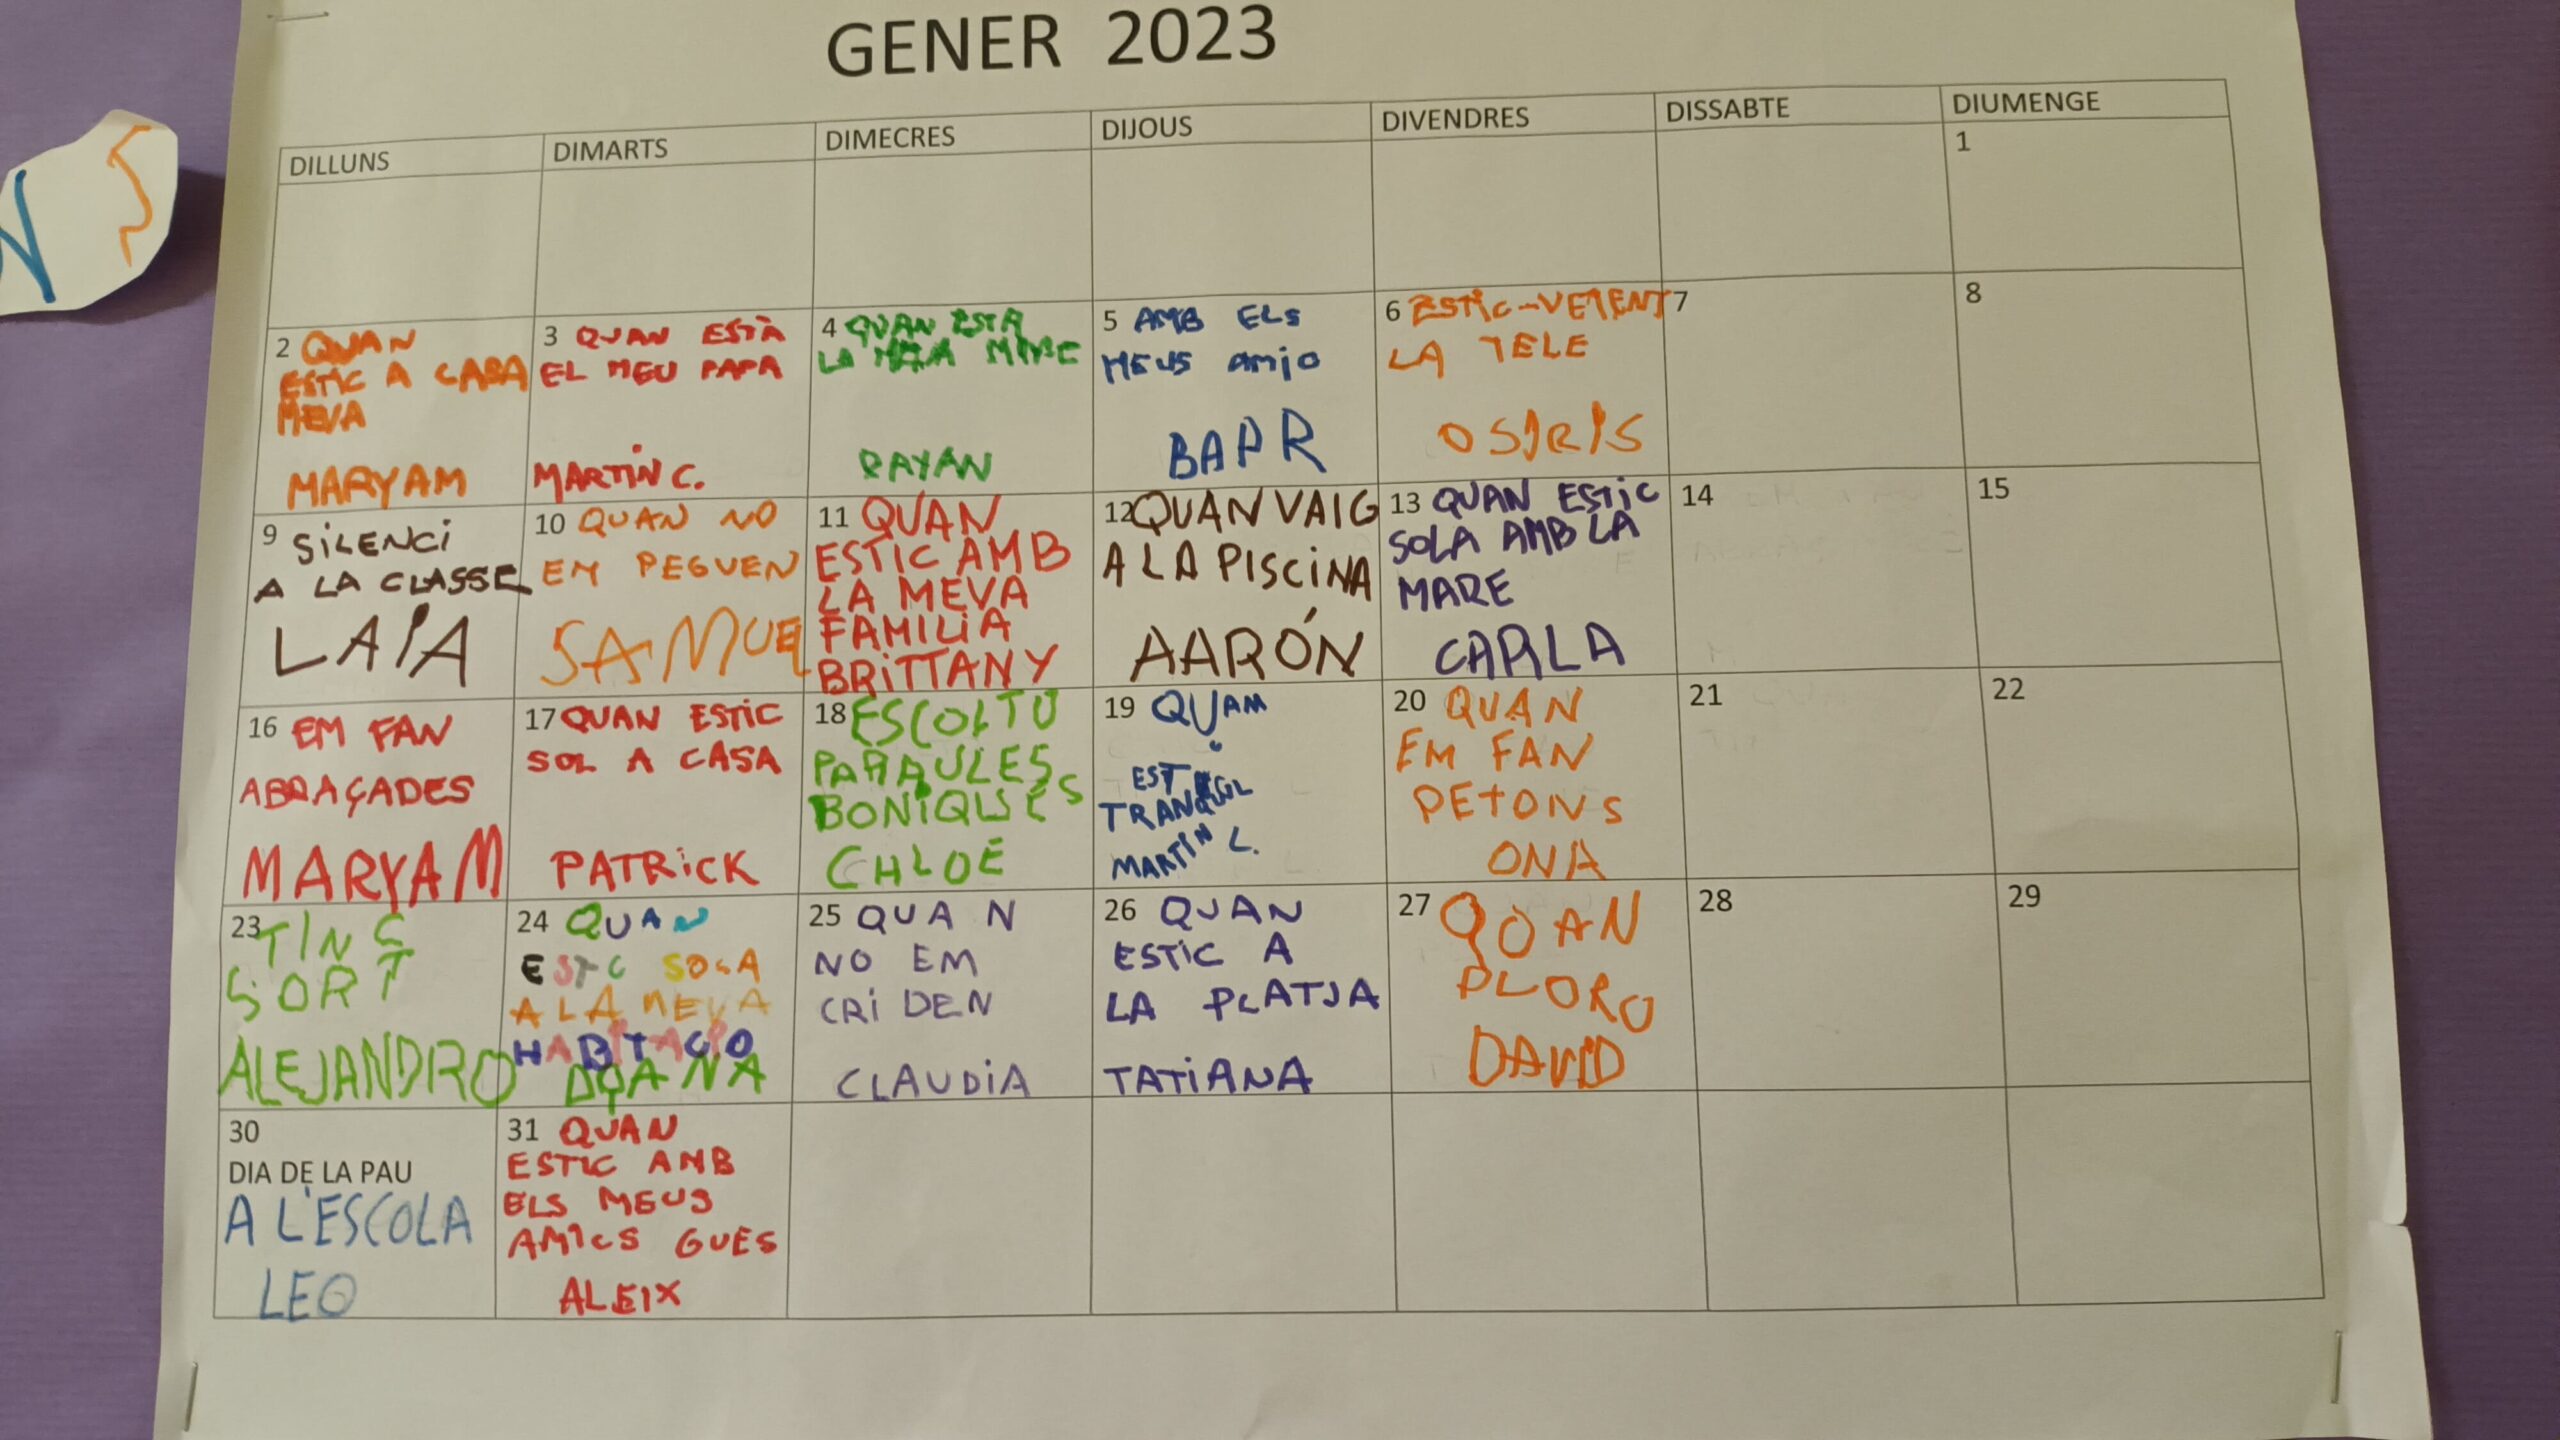 GENER 2023
DILLUNS DIMARTS DIMECRES DIJOUS DIVENDRES DISSABTE DIUMENGE
1
2 QUAN
ESTIC A CASA
MEVA
MARYAM
3 QUAN ESTÀ
EL MEU PAPA
MARTÍN C.
4 QUAN ESTA
LA MEVA MARE
RAYAN
5 AMB ELS
MEUS amio
BAPR
6 ESTIC-VEIENT
LA TELE
OSIRIS
7
8
9 SILENCI
A LA CLASSE
LAIA
10 QUAN NO
EM PEGUEN
SAMUEL
11 QUAN
ESTIC AMB
LA MEVA
FAMILIA
BRITTANY
12 QUAN VAIG
A LA PISCINA
AARÓN
13 QUAN ESTIC
SOLA AMB LA
MARE
CARLA
14
15
16 EM FAN
ABRAÇADES
MARYAM
17 QUAN ESTIC
SOL A CASA
PATRICK
18 ESCOLTU
PARAULES
BONIQUES
CHLOE
19 QUAM
TRANQUIL
MARTIN L.
20 QUAN
EM FAN
PETONS
ONA
21
22
23 TINC
SORT
ALEJANDRO
24 QUAN
ESTC SOLA
A LA MEVA
HABITACIO
25 QUAN
NO EM
CRIDEN
CLAUDIA
26 QUAN
ESTIC A
LA PLATJA
TATIANA
27 QOAN
PLORO
DAVID
28
29
30
DIA DE LA PAU
A L'ESCOLA
LEO
31 QUAN
ESTIC AMB
ELS MEUS
AMICS GUES
ALEIX